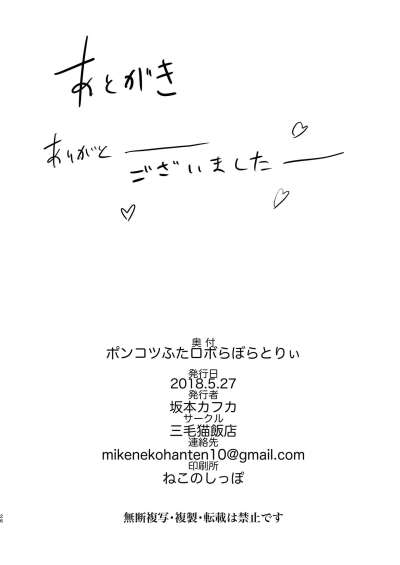 あとがき
ありがと──
ございました──
奥付
ポンコツふたロボらぼらとりぃ
発行日
2018.5.27
発行者
坂本カフカ
サークル
三毛猫飯店
連絡先
mikenekohanten10@gmail.com
印刷所
ねこのしっぽ
無断複写・複製・転載は禁止です